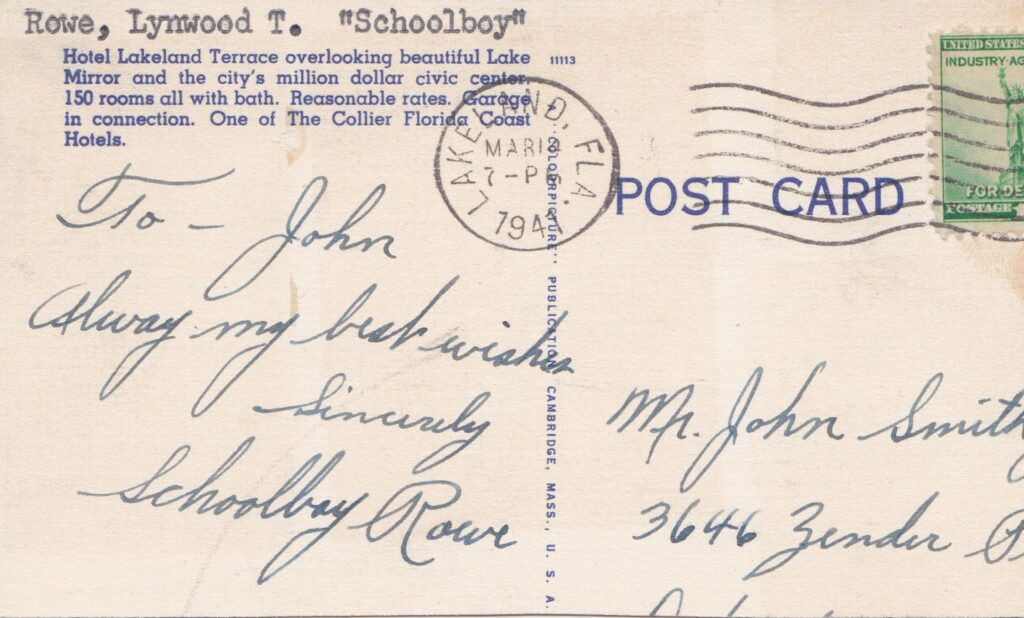 Rowe, Lynwood T. "Schoolboy"
Hotel Lakeland Terrace overlooking beautiful Lake
Mirror and the city's million dollar civic center.
150 rooms all with bath. Reasonable rates. Garage
in connection. One of The Collier Florida Coast
Hotels.
11113
LAKELAND, FLA.
MAR
7-PM
1941
UNITED STATES
INDUSTRY-AG
FOR DE
POSTAGE 1
POST CARD
"COLOURPICTURE" PUBLICATION CAMBRIDGE, MASS., U. S. A.
To - John
Alway my best wishes
Sincerely
Schoolboy Rowe
Mr. John Smith
3646 Zender